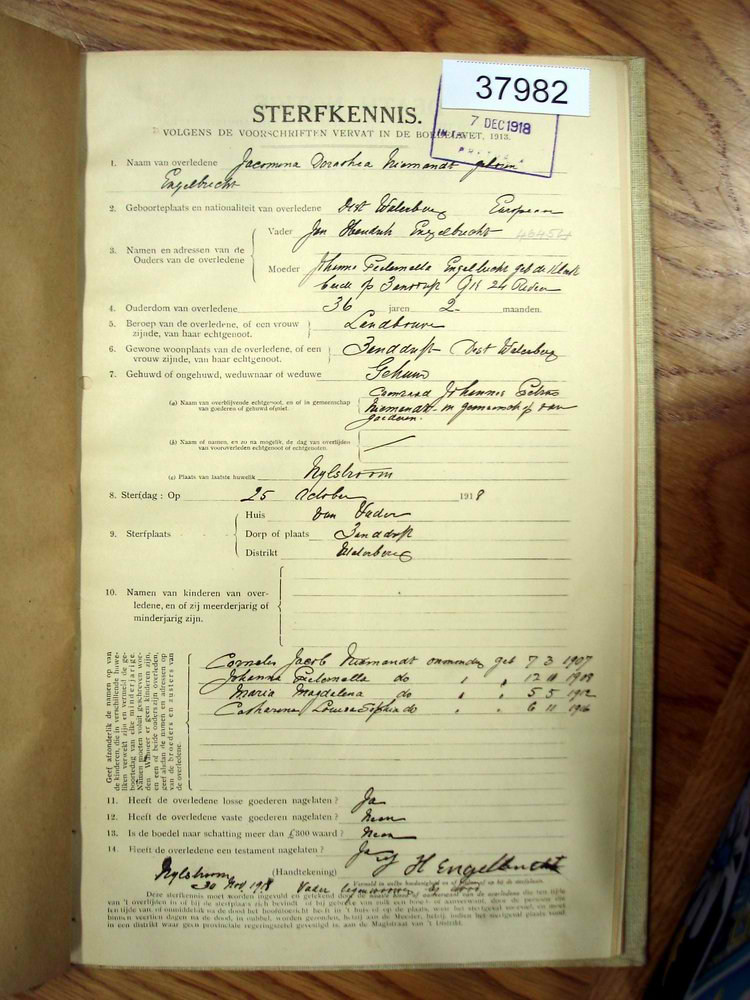 37982
7 DEC 1918
STERFKENNIS.
VOLGENS DE VOORSCHRIFTEN VERVAT IN DE BOEDELWET, 1913.
1. Naam van overledene Jacomina Dorothea Niemandt geboren
Engelbrecht
2. Geboorteplaats en nationaliteit van overledene Dist Waterberg European
Vader Jan Hendrik Engelbrecht
3. Namen en adressen van de Ouders van de overledene
Moeder Johanna Petronella Engelbrecht geb de Klerk
beide op Zanddrift
4. Ouderdom van overledene 36 jaren 2 maanden.
5. Beroep van de overledene, of een vrouw zijnde, van haar echtgenoot. Landbouwer
6. Gewone woonplaats van de overledene, of een vrouw zijnde, van haar echtgenoot. Zanddrift Dist Waterberg
7. Gehuwd of ongehuwd, weduwnaar of weduwe Gehuwd
(a) Naam van overblijvende echtgenoot, en of in gemeenschap van goederen of gehuwd of niet
Coenraad Johannes Petrus
Niemandt in gemeenschap van
goederen.
(b) Naam of namen, en zo na mogelik, de dag van overlijden van vooroverleden echtgenoot of echtgenoten.
(c) Plaats van laatste huwelik Nylstroom
8. Sterfdag: Op 25 October 1918
Huis van Vader
9. Sterfplaats Dorp of plaats Zanddrift
Distrikt Waterberg
10. Namen van kinderen van overledene, en of zij meerderjarig of minderjarig zijn.
Geef afzonderlik de namen op van de kinderen, die in verschillende huweliken verwekt zijn en vermeld de geboortedag van elke minderjarige. Namen moeten voluit geschreven worden. Wanneer er geen kinderen zijn, en een of beide ouders zijn overleden, geef alsdan de namen en adressen op van de broeders en zusters van de overledene.
Cornelis Jacob Niemandt onmondig geb 7 3 1907
Johanna Petronella do " " 12 11 1908
Maria Magdalena do " " 5 5 1912
Catharina Louisa Sophia do " " 6 11 1916
11. Heeft de overledene losse goederen nagelaten? Ja
12. Heeft de overledene vaste goederen nagelaten? Neen
13. Is de boedel naar schatting meer dan £300 waard? Neen
14. Heeft de overledene een testament nagelaten? Ja
Nylstroom (Handtekening) J H Engelbrecht
30 Nov 1918 Vader tegenwoordig